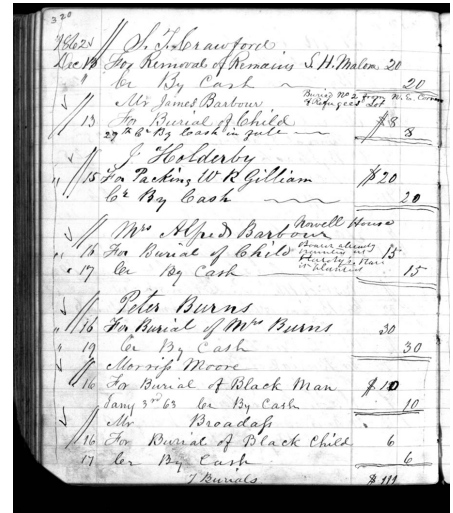 320
1862 S. T. Crawford
Dec 13 For Removal of Remains S. H. Malom 20
" Cr By Cash 20
Mr James Barbour
Buried No 2 from N. E. Corner
of Refugees Lot
13 For Burial of Child $8
27th Cr By Cash in full 8
J. Holderby
" 15 For Packing W R Gilliam $20
Cr By Cash 20
Mrs Alfred Barbour Nowell House
" 16 For Burial of Child 15
Boarer already
" 17 Cr By Cash 15
Peter Burns
" 16 For Burial of Mrs Burns 30
" 19 Cr By Cash 30
Morriss Moore
16 For Burial of Black Man $10
Jany 3rd 63 Cr By Cash 10
Mr Broadass
16 For Burial of Black Child 6
17 Cr By Cash 6
7 Burials $111